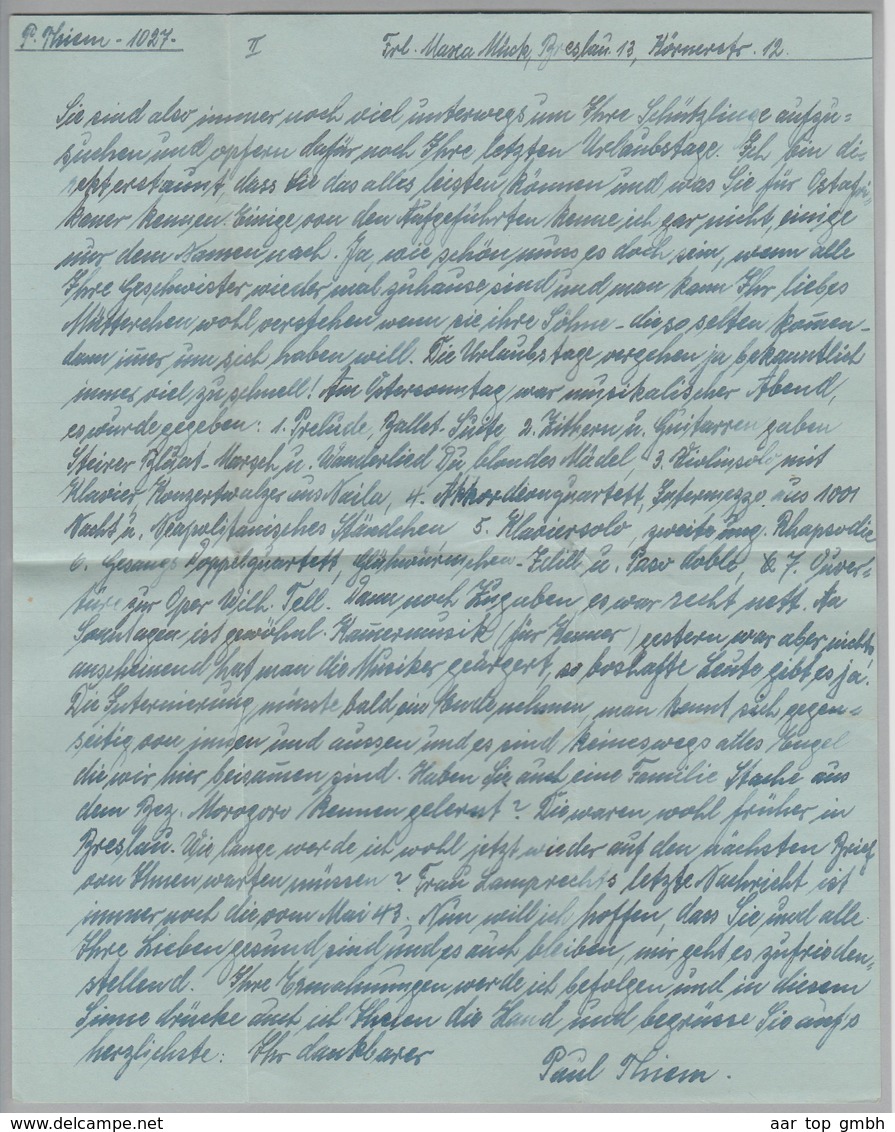 P. Thiem - 1027- II Frl. Maria Mück, Breslau 13, Körnerstr. 12.
Sie sind also immer noch viel unterwegs um Ihre Schützlinge aufzu=
suchen und opfern dafür noch Ihre letzten Urlaubstage. Ich bin di=
rekt erstaunt, dass Sie das alles leisten können und was Sie für Ostafri=
kaner kennen. Einige von den Aufgeführten kenne ich gar nicht, einige
nur dem Namen nach. Ja, wie schön muss es doch sein, wenn alle
Ihre Geschwister wieder mal zuhause sind und man kann Ihr liebes
Mütterchen wohl verstehen wenn sie ihre Söhne - die so selten kom̄en -
dann im̄er um sich haben will. Die Urlaubstage vergehen ja bekanntlich
immer viel zu schnell! Am Ostersonntag war musikalischer Abend,
es wurde gegeben: 1. Prelude, Ballet-Suite 2. Zithern u. Guitarren gaben
Steirer Bluat-Marsch u. Wanderlied Du blondes Mädel, 3. Violinsolo mit
Klavier, Konzertwalzer aus Naila, 4. Akkordeonquartett, Intermezzo aus 1001
Nacht u. Neapolitanisches Ständchen 5. Klaviersolo, zweite ung. Rhapsodie
6. Gesangs Doppelquartett, Glühwürmchen-Idill u. Paso doble, 7. Ouver=
türe zur Oper Wilh. Tell. Dann noch Zugaben, es war recht nett. An
Sonntagen ist gewöhnl. Kam̄ermusik (für Kenner) gestern war aber nichts
anscheinend hat man die Musiker geärgert, so boshafte Leute gibt es ja!
Die Internierung müsste bald ein Ende nehmen, man kennt sich gegen=
seitig von innen und aussen und es sind keineswegs alles Engel
die wir hier beisam̄en sind. Haben Sie auch eine Familie Stache aus
dem Bez. Morogoro kennen gelernt? Die waren wohl früher in
Breslau. Wie lange werde ich wohl jetzt wieder auf den nächsten Brief
von Ihnen warten müssen? Frau Lamprechts letzte Nachricht ist
immer noch die vom Mai 43. Nun will ich hoffen, dass Sie und alle
Ihre Lieben gesund sind und es auch bleiben, mir geht es zufrieden=
stellend. Ihre Ermahnungen werde ich befolgen und in diesem
Sinne drücke auch ich Ihnen die Hand und begrüsse Sie aufs
herzlichste: Ihr dankbarer
Paul Thiem.
aar top gmbh